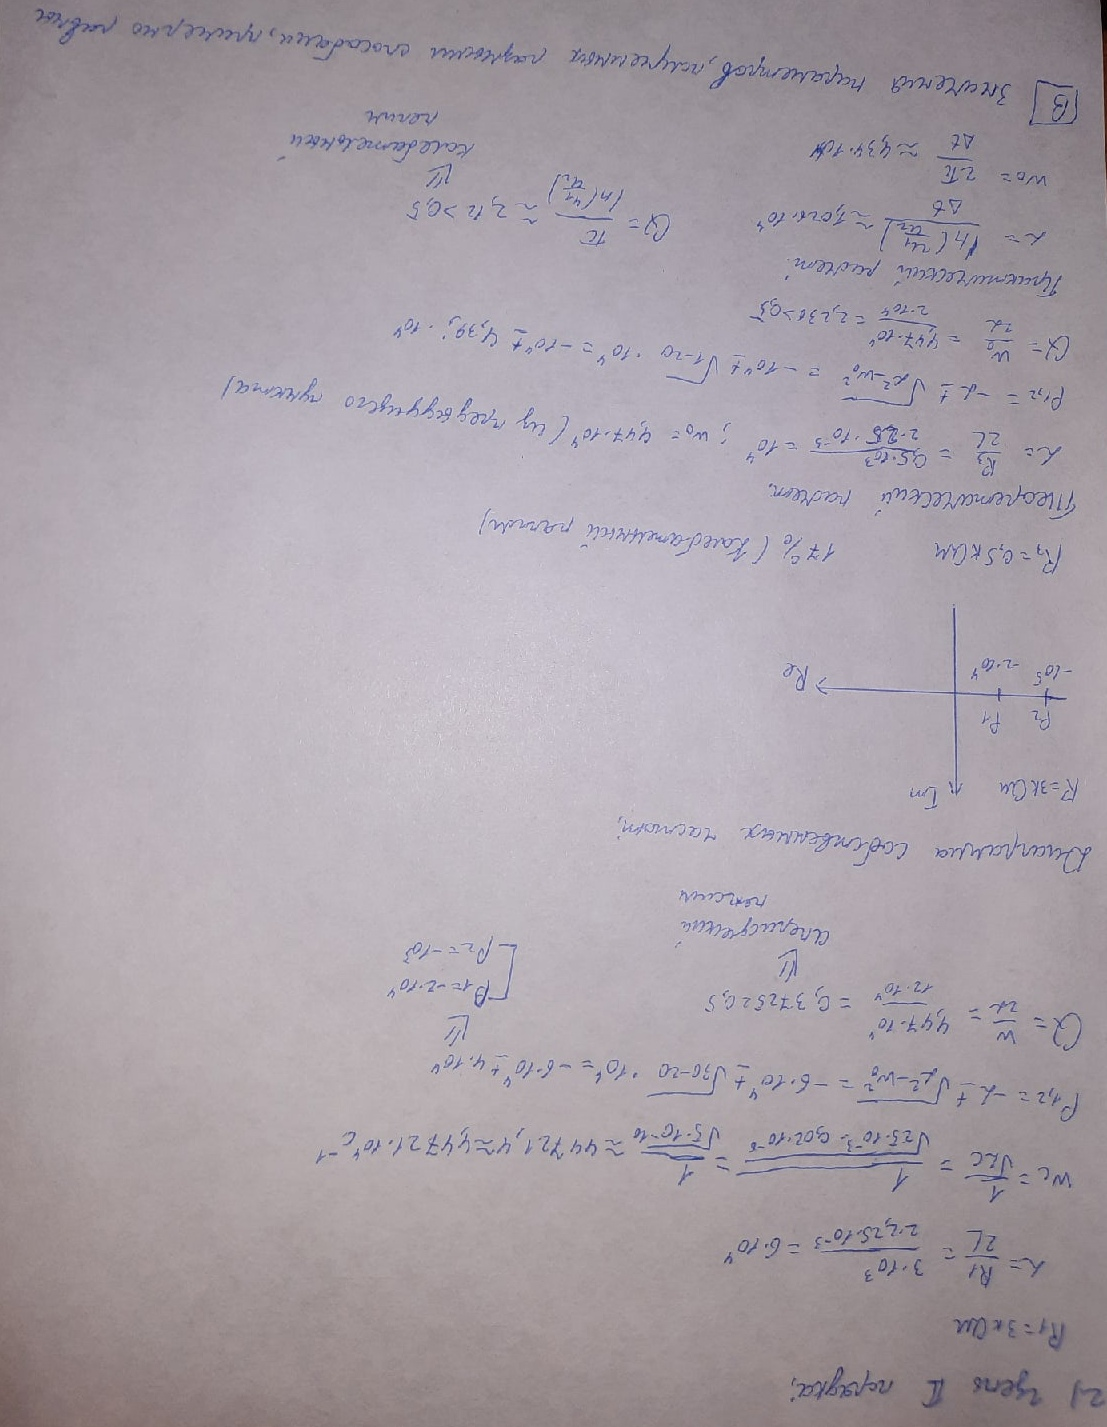 2) Цепь II порядка:
R1=3кОм
α = R1/2L = 3·10³/2·2,25·10⁻³ = 6·10⁴
ω₀ = 1/√LC = 1/√25·10⁻³·0,02·10⁻⁶ = 1/√5·10⁻¹⁰ ≈ 44721,4 ≈ 4,4721·10⁴ c⁻¹
P1,2 = -α ± √α²-ω₀² = -6·10⁴ ± √36-20 ·10⁴ = -6·10⁴ ± 4·10⁴
⇓
Q = ω/2α = 4,47·10⁴/12·10⁴ = 0,3725<0,5
P1=-2·10⁴
P2=-10⁵
⇓
Апериодический
режим
Диаграмма собственных частот:
R=3кОм
Im
P2 P1
Re
-10⁵ -2·10⁴
R3=0,5кОм 17% (колебательный режим)
Теоретический расчет:
α = R3/2L = 0,5·10³/2·2,5·10⁻³ = 10⁴; ω₀ = 4,47·10⁴ (из предыдущего пункта)
P1,2 = -α ± √α²-ω₀² = -10⁴ ± √1-20 ·10⁴ = -10⁴ ± 4,39j·10⁴
Q = ω₀/2α = 4,47·10⁴/2·10⁴ = 2,236>0,5
Практический расчет:
α = ln(U1/U2)/Δt ≈ 1,026·10⁴
Q = π/ln(U1/U2) ≈ 2,12>0,5
ω₀ = 2π/Δt ≈ 4,34·10⁴
⇓
колебательный
режим
В Значения параметров, полученных разными способами, примерно равны